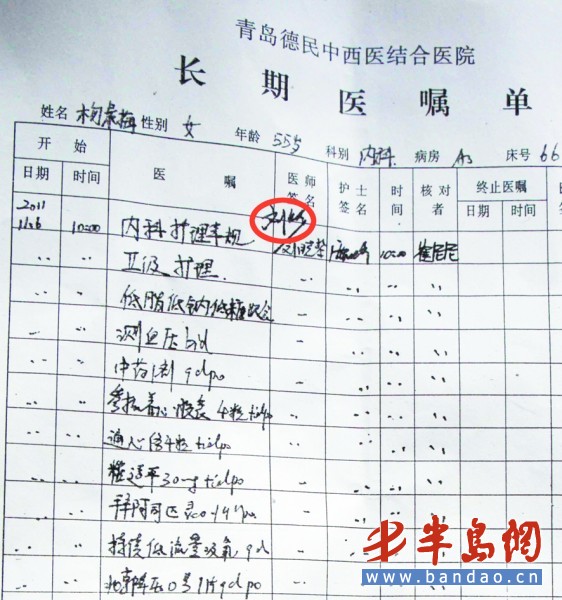 青岛德民中西医结合医院
长期医嘱单
姓名 性别 女 年龄 55岁 科别 内科 病房 床号 66
开始 医嘱 医师签名 护士签名 时间 核对者 终止医嘱
日期 时间 日期 时间
2011
11.26 10:00 内科护理常规 10:00
II级护理
低脂低钠低糖饮食
测血压 bid
中药1剂 qdpo
参松养心胶囊 4粒 tidpo
通心络4粒 tidpo
糖适平30mg tidpo
拜阿司匹灵
持续低流量吸氧 qd
北京降压0号 1片 qdpo
半岛网
www.bandao.cn